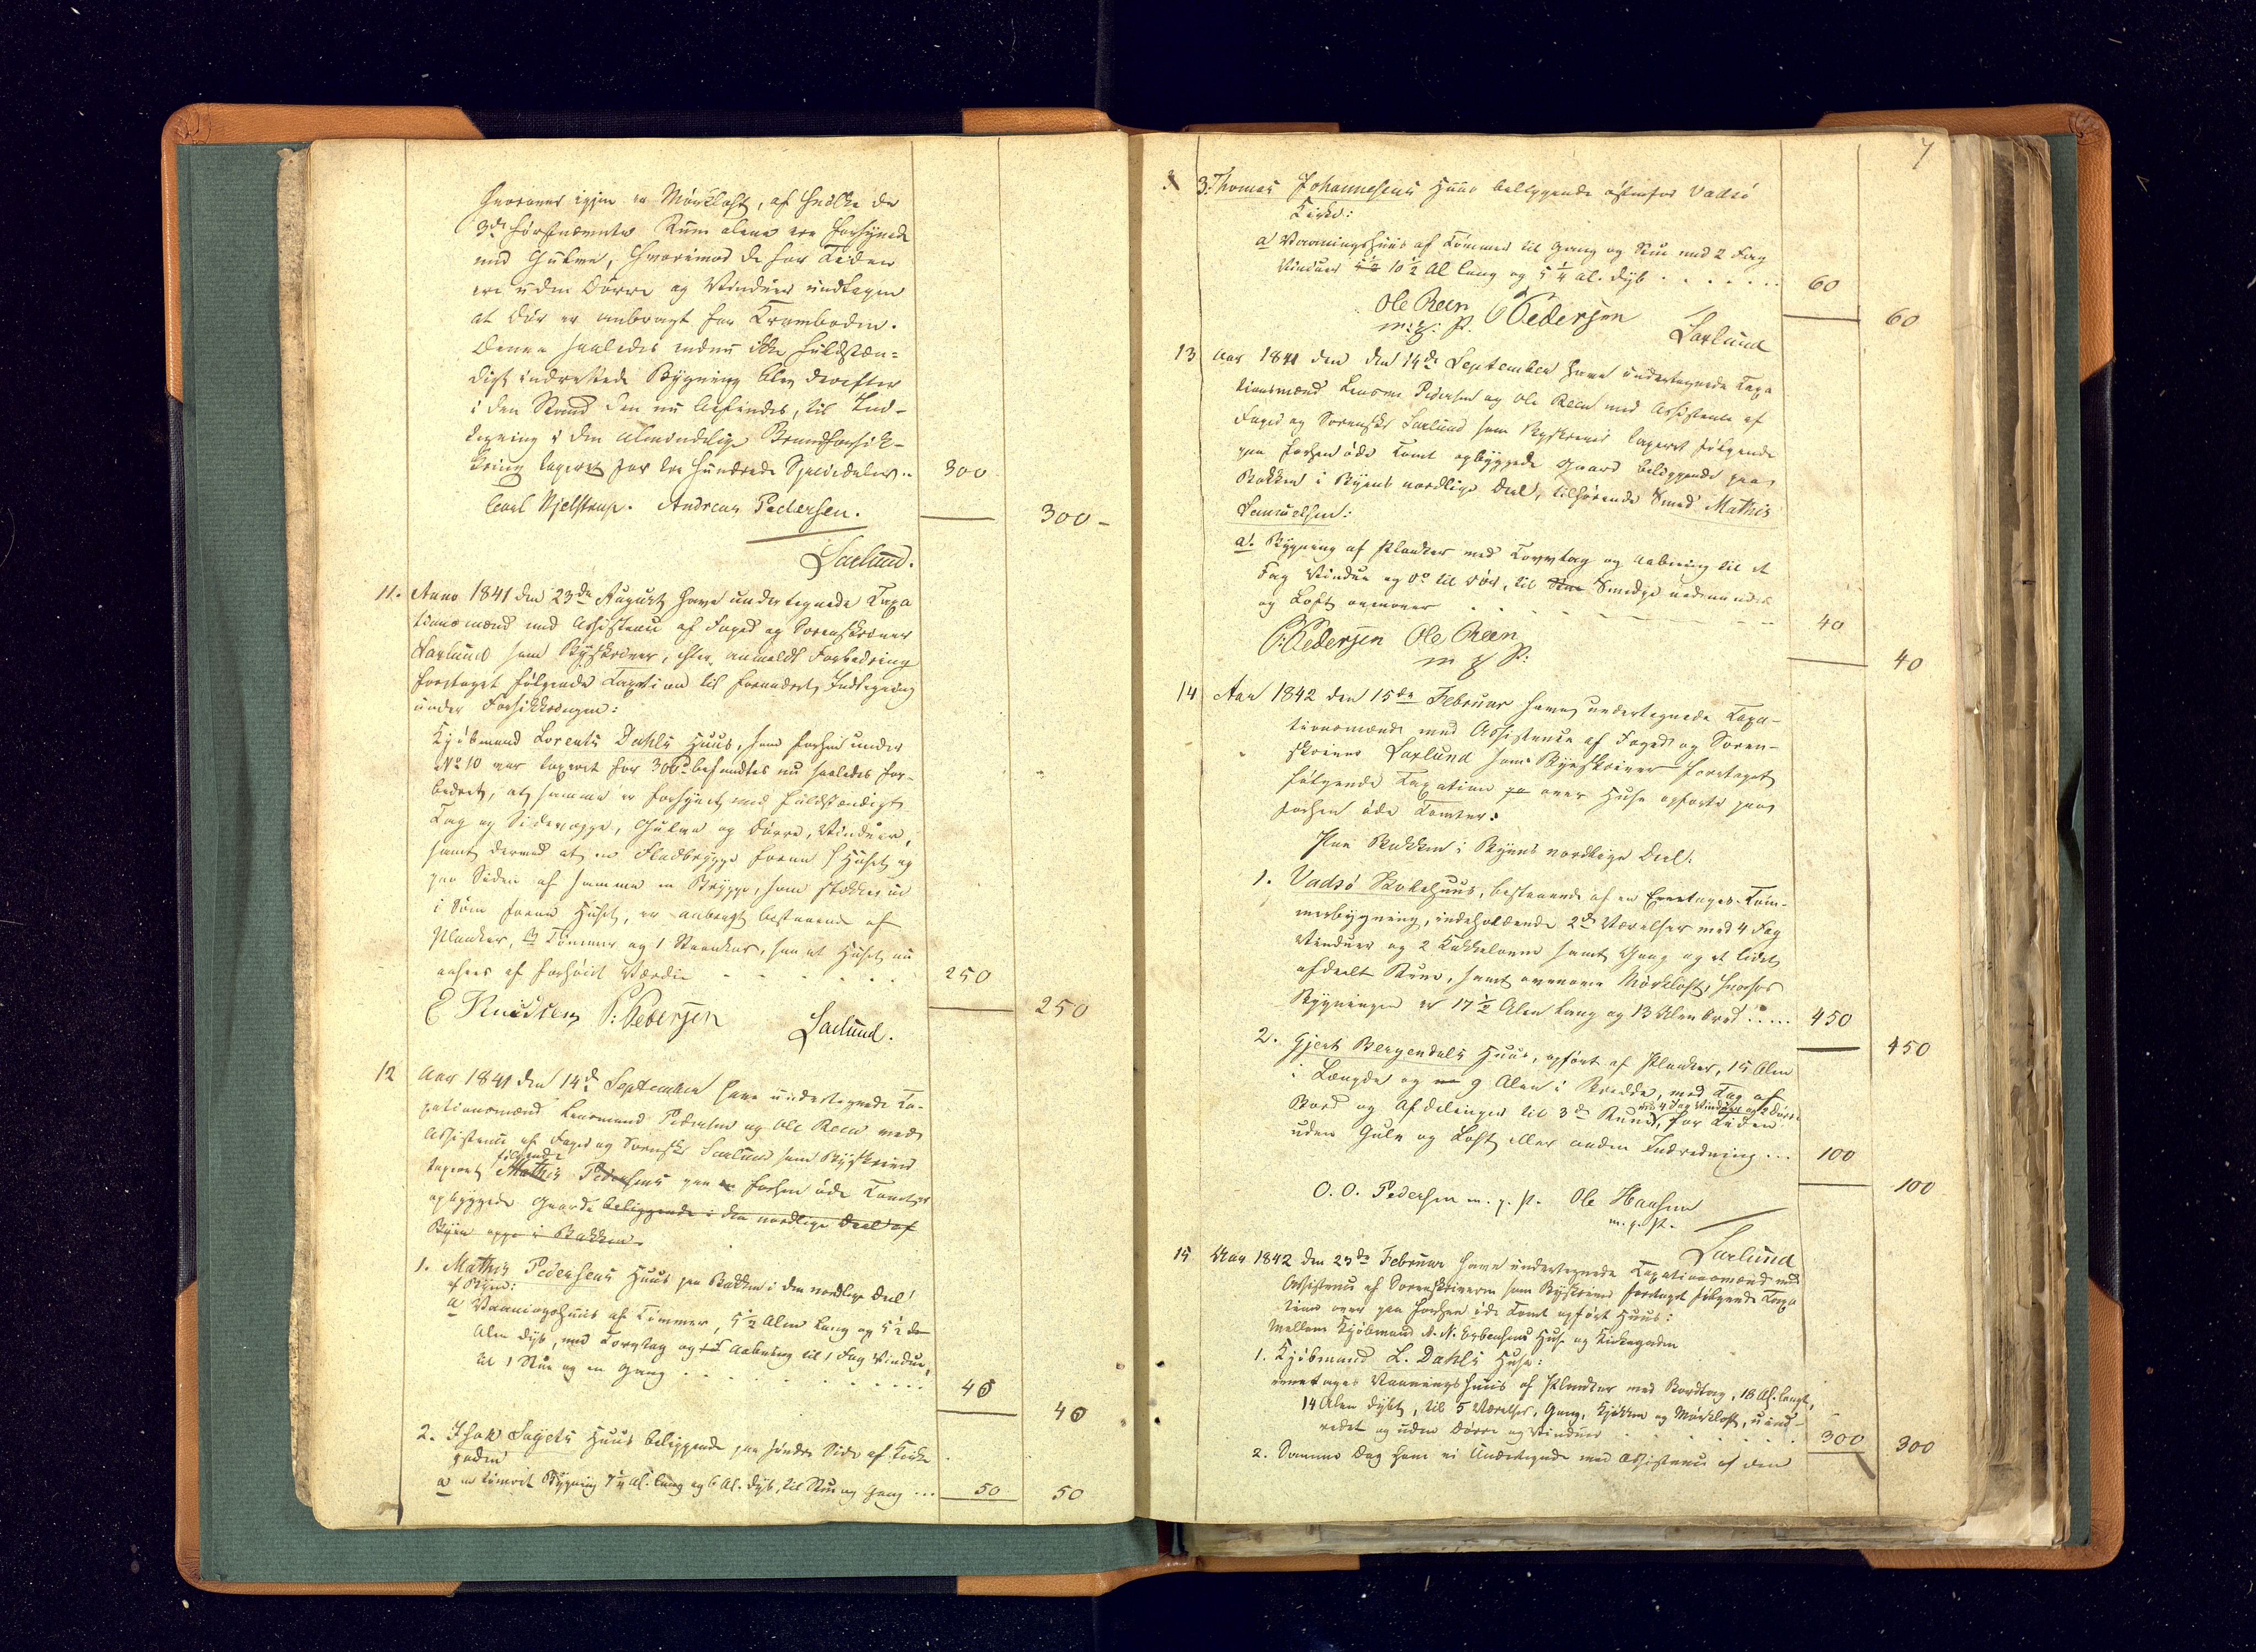 hvorover igjen er Mørkloft, af hvilke de
3de førstnævnte Rum alene ere forsynede
med Gulve, hvorimod de for Tiden
ere uden Dørre og Vinduer undtagen
at Dør er anbragt for Kramboden.
Denne saaledes endnu ikke fuldstæn-
digt indrettede Bygning blev derefter
i den Stand den nu befindes, til Ind-
tegning i den almindelige Brandforsik-
kring taxeret for tre hundrede Speciedaler .. 300
300 -
Carl Kjelstrup. Andreas Pedersen.
Sarlund.
11. Anno 1841 den 23de August have undertegnede Taxa
tionsmænd med Assistence af Foged og Sorenskriver
Sarlund som Byskriver, efter anmeldt Forbedring
foretaget følgende Taxation til forandret Indtegning
under Forsikkringen:
Kjøbmand Lorents Dahls Huus, som forhen under
No 10 var taxeret for 300 befandtes nu saaledes for-
bedret, at samme er forsynet med fuldstændigt
Tag og Sidevægge, Gulve og Dørre, Vinduer,
samt dermed at en Fladbrygge foran Huset og
paa Siden af samme en Brygge, som stikker ud
i Søen foran Huset, er anbragt bestaaende af
Planker, Tømmer og 1 Steenkar, saa at Huset nu
ansees af forhøiet Værdie - - - - 250
250
E Knudsen P: Pedersen Sarlund.
12 Aar 1841 den 14de September have undertegnede Ta-
xationsmænd Lensmand Pedersen og Ole Reen med
Assistence af Foged og Sorenskr Sarlund som Byskriver
taxeret følgende Mathis Pedersens paa en forhen øde Tomter
opbyggede Gaarde beliggende i den nordlige Deel af
Byen oppe i Bakken.
1. Mathis Pedersens Huus paa Bakken i den nordlige Deel
af Byen:
a Vaaningshuus af Tømmer, 5½ Alen lang og 5½
Alen dyb, med Torvtag og Aabning til 1 Fag Vindue,
til 1 Stue og en Gang . . . . 40
40
2. Isak Sagets Huus beliggende paa søndre Side af Kirke
gaden
a en tømret Bygning Al. lang og 6 Al. dyb, til Stue og Gang ... 50
50
7
3. Thomas Johannesens Huus beliggende østenfor Vadsø
Kirke:
a Vaaningshuus af Tømmer til Gang og Stue med 2 Fag
Vinduer 10½ Al lang og 5¼ Al. dyb . . . . . . 60
60
Ole Reen m: p: P. P Pedersen Sarlund
13 Aar 1841 den den 14de September have undertegnede Taxa
tionsmænd Lensm. Pedersen og Ole Reen med Assistence af
Foged og Sorenskr Sarlund som Byskriver taxeret følgende
paa forhen øde Tomt opbyggede Gaard beliggende paa
Bakken i Byens nordlige Deel, tilhørende Smed Mathis
Samuelsen:
a. Bygning af Planker med Torvtag og Aabning til et
Fag Vindue og Do til Dør, til Stue Smedje nedenunder
og Loft ovenover - - - - 40
40
P. Pedersen Ole Reen
m p P:
14 Aar 1842 den 15de Februar have undertegnede Taxa-
tionsmænd med Assistence af Foged og Soren-
skriver Sarlund som Byeskriver foretaget
følgende Taxation pa over Huse opførte paa
forhen øde Tomter:
Paa Bakken i Byens nordlige Deel.
1. Vadsø Skolehuus, bestaaende af en Eenetages Tøm-
merbygning, indeholdende 2de Værelser med 4 Fag
Vinduer og 2 Kakkelovne samt Gang og et lidet
afdeelt Rum, samt ovenover Mørkloft, hvorhos
Bygningen er 17½ Alen lang og 13 Alen bred ..... 450
450
2. Gjert Bergendals Huus, opført af Planker, 15 Alen
i Længde og 9 Alen i Bredde, med Tag af
Bord og Afdelinger til 3de Rum, med 4 Fag Vinduer og 2 Dørre for Tiden
uden Gulv og Loft eller anden Indredning ... 100
100
O. O. Pedersen m. p. P. Ole Hansen
m. p. P.
Sarlund
15 Aar 1842 den 23de Februar have undertegnede Taxationsmænd med
Assistence af Sorenskriveren som Byskriver foretaget følgende Taxa
tion over paa forhen øde Tomt opført Huus:
Mellem Kjøbmand A. N. Esbensens Huse og Kirkegaden
1. Kjøbmand L. Dahls Huse:
eenetages Vaaningshuus af Planker med Bordtag, 18 Al. langt,
14 Alen dybt, til 5 Værelser, Gang, Kjøkken og Mørkloft, uind-
redet og uden Dørre og Vinduer . . . . 300
300
2. Samme Dag have vi Undertegnede med Assistence af den